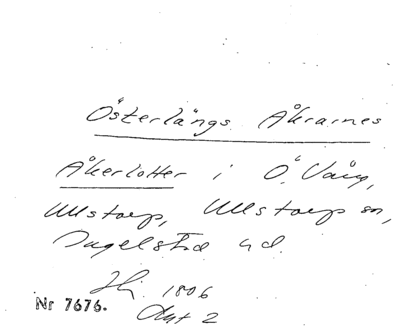 Österlängs Åkrarnes
Åkerlotter i Ö. Vång,
Ullstorp, Ullstorp sn,
Ingelstad hd.
1806
Nr 7676. Akt 2